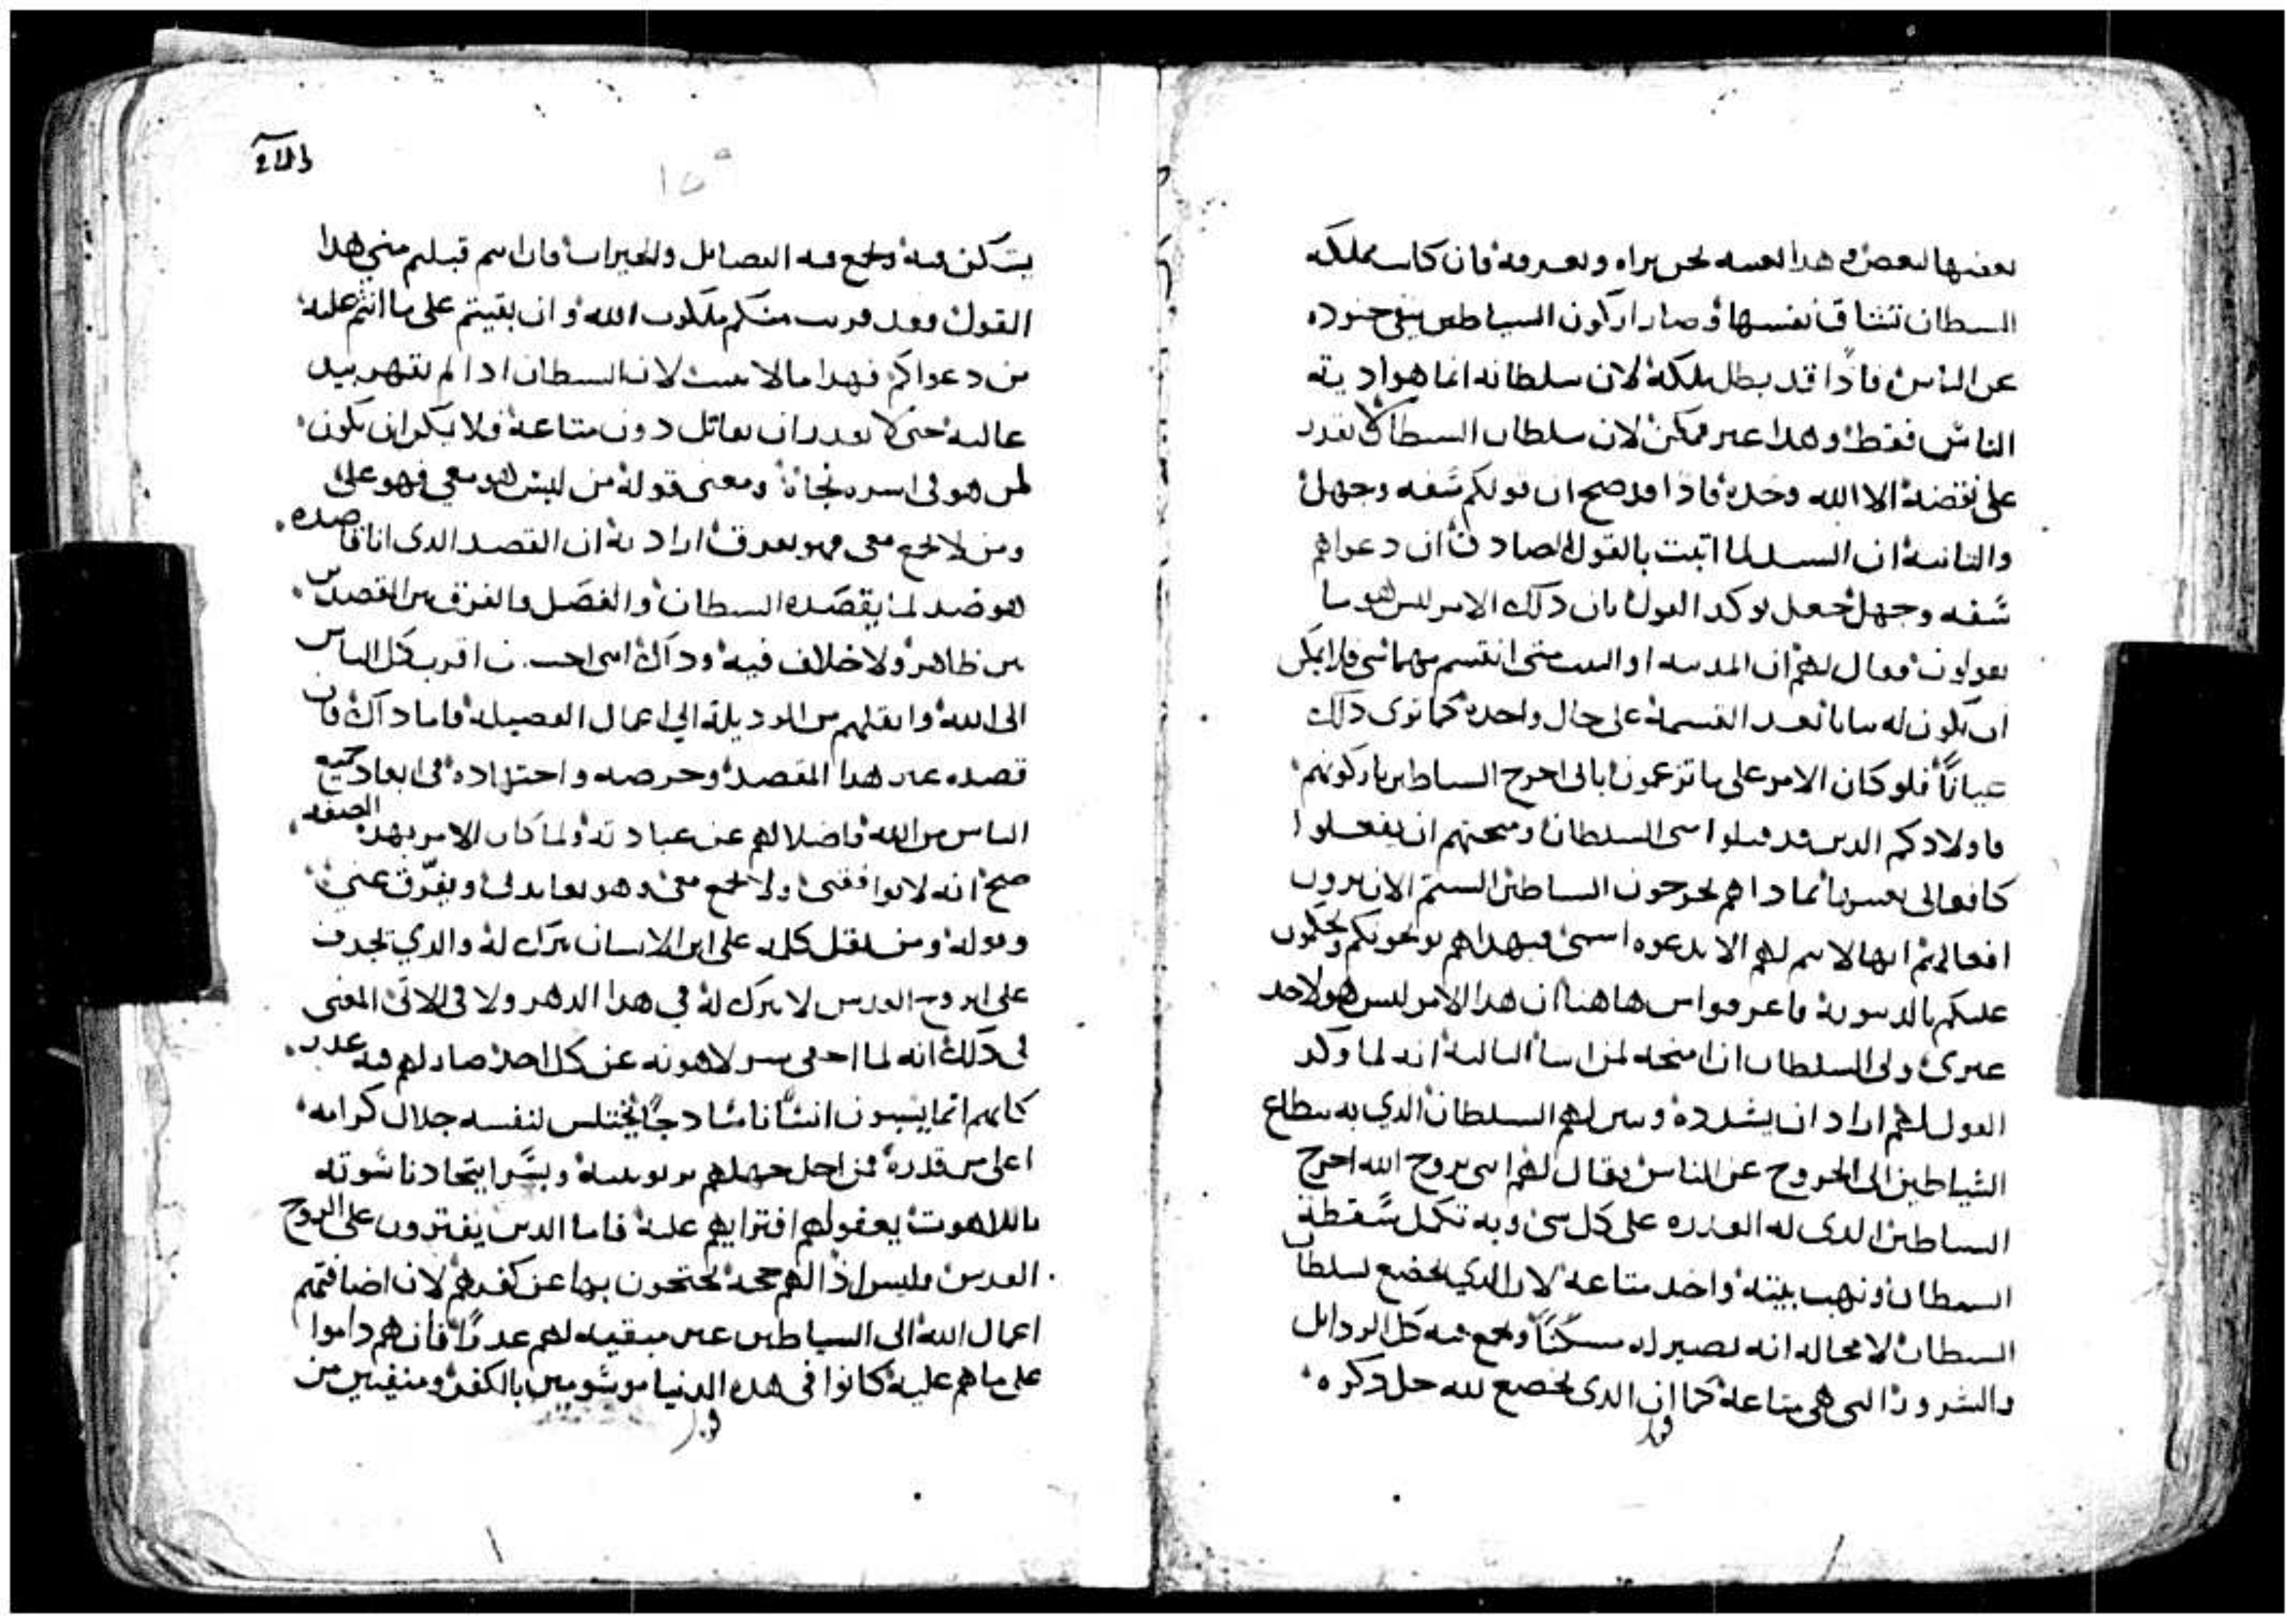 بعضها لبعض في هذا العسه نحن نراه ونعرفه فان كانت مملكه
السطان تشاق نفسها وصار اركون الشياطين ينفي جنوده
عن الناس فاذًا قد بطل ملكه لان سلطانه انما هو اديته
الناس فقط وهذا غير ممكن لان سلطان السطان لا يقدر
على نقضه الا الله وحده فاذا قد صح ان قولكم سفه وجهل
والثانيه ان السيد لما اتبت بالقول الصادق ان دعواهم
سفه وجهل جعل يوكد القول بان ذلك الامر ليس هو ما
يقولون فقال لهم ان المدينه او البيت متى انقسم مهما شي فلا يمكن
ان يكون له ثباتا بعد القسمة على حال واحده كما نرى ذلك
عيانًا فلو كان الامر على ما تزعمون اني اخرج الشياطين باركونهم
فاولادكم الدين قد قبلوا مني السلطان ومنحتهم ان يفعلوا
كافعالي بعينها بماداهم يخرجون الشياطين الستم الان ترون
افعالي ثم انها لا تتم لهم الا بدعوه اسمي فبهذا هم يوبخونكم ويحكمون
عليكم بالدينونة فاعرفوا من هاهنا ان هذا الامر ليس هو لاحد
غيري ولي السلطان ان امنحه لمن اشا الثالثة انه لما وكد
القول لهم اراد ان يشدده وبين لهم السلطان الذي به يستطاع
الشياطين الى الخروج عن الناس فقال لهم انني بروح الله اخرج
الشياطين الذي له القدره على كل شي وبه تكمل سقطة
السطان ونهب بيته واخد متاعه لان الذي يخضع لسلطان
السطان لا محاله انه يصير له مسكنًا ويجمع فيه كل الردايل
والشرور التي هي متاعه كما ان الذي يخضع لله جل ذكره
يسكن فيه ويجمع فيه الفضايل والخيرات فان انتم قبلتم مني هذا
القول فقد قربت منكم ملكوت الله وان بقيتم على ما انتم عليه
من دعواكم فهذا ما لا يثبت لان السطان ادا لم يقهر بيد
غالبه حتى لا يقدر ان يقاتل دون متاعه فلا يمكن ان يكون
لمن هو في اسره نجاة ومعنى قوله من ليس هو معي فهو علي
ومن لا يجمع معي فهو يفرق اراد به ان القصد الذي انا قاصده
هو ضد لما يقصده السطان والفصل والفرق بين القصدين
بين ظاهر ولا خلاف فيه وذاك انني احب ان اقرب كل الناس
الى الله وانقلهم من الرديلة الى اعمال الفضيله فاما ذاك فان
قصده غير هذا القصد وحرصه واجتهاده في ابعاد جميع
الناس من الله فاضلالهم عن عبادته ولما كان الامر بهذه الصفه
صح انه لا يوافقني ولا يجمع معي وهو يعاندني ويفرق عني
وقوله ومن يقل كلمه على ابن الانسان يترك له والذي يجدف
على الروح القدس لا يترك له في هذا الدهر ولا في الاتي المعنى
في ذلك انه لما اخفى سر لاهوته عن كل احد صار لهم فيه عدر
كانهم انما يسبون انسانا سادجًا يختلس لنفسه جلال كرامه
اعلى من قدره فمن اجل جهلهم بربوبيته وبسر اتحاد ناسوته
باللاهوت يعفو لهم افترايهم عليه فاما الدين يفترون على الروح
القدس فليس اذا لهم حجه يحتجون بها عن كفرهم لان اضافتهم
اعمال الله الى الشياطين غير مبقيه لهم عدرًا فان هم داموا
على ما هم عليه كانوا في هذه الدنيا موسومين بالكفر ومنفيين من